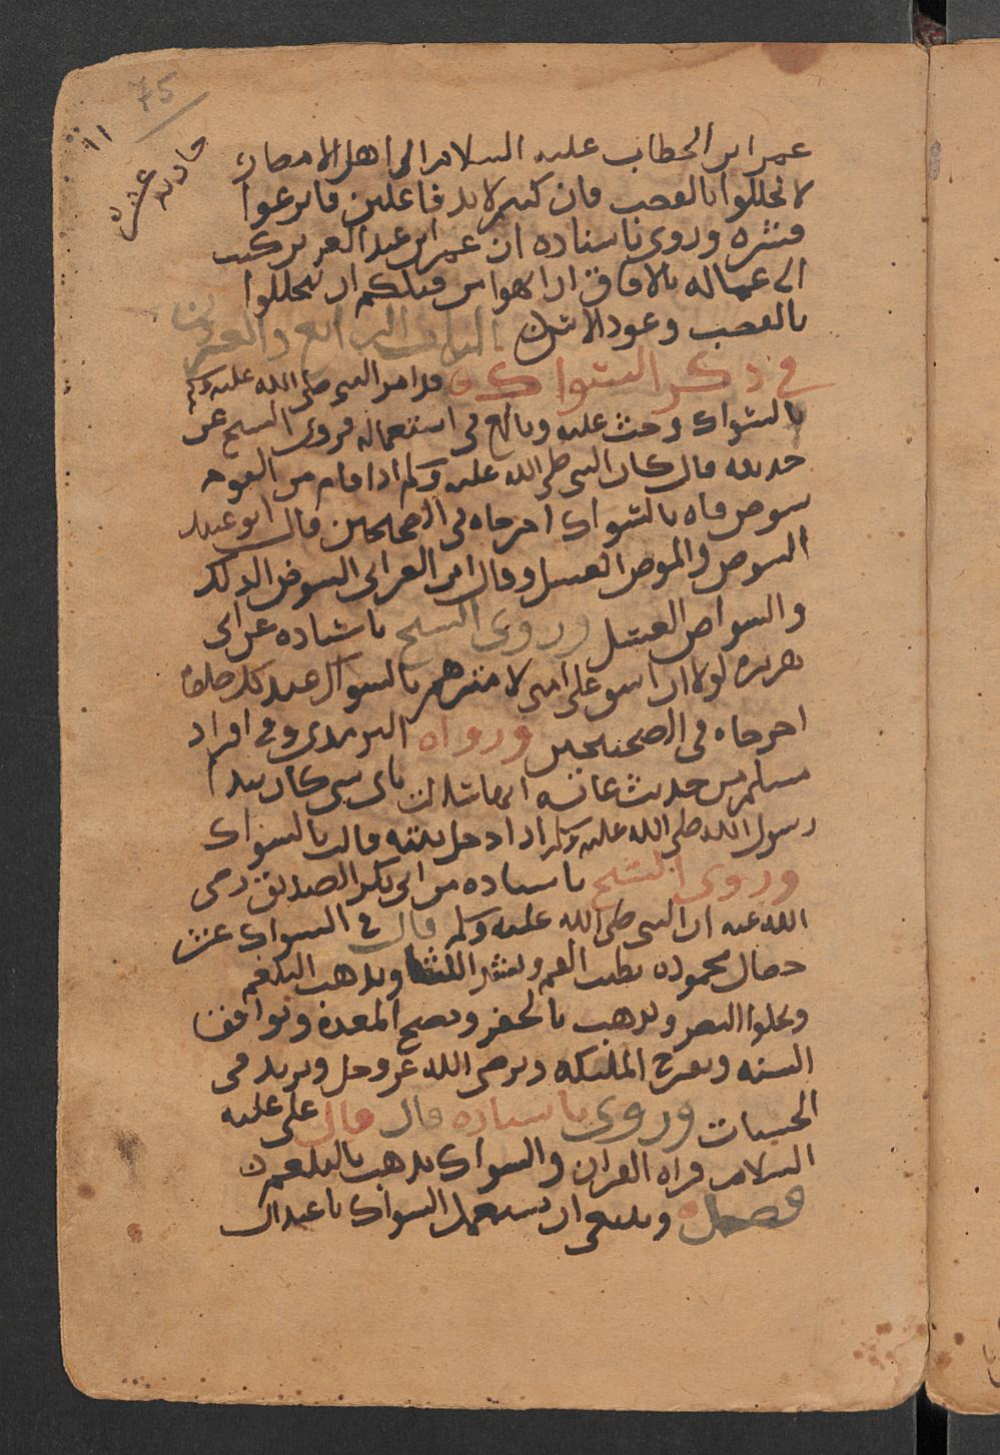 75
١١
حادية
عشرة
عمر ابن الخطاب عليه السلام الى اهل الامصار
لا تخللوا بالقصب فان كنتم لابد فاعلين فانزعوا
قشره وروى باسناده ان عمر ابن عبد العزيز كتب
الى عماله بالافاق ان انهوا من قبلكم ان يتخللوا
بالقصب وعود الاس الباب الرابع والعشرون
في ذكر السواك قد امر النبي صلى الله عليه وسلم
بالسواك وحث عليه وبالغ في استعماله فروى الشيخ عن
حذيفه قال كان النبي صلى الله عليه وسلم اذا قام من النوم
يشوص فاه بالسواك اخرجاه في الصحيحين قال ابو عبيد
الشوص والموص الغسل وقال ابن الاعرابي الشوص الدلك
والسواص الغسل وروى الشيخ باسناده عن ابي
هريره لولا ان اشق على امتي لامرتهم بالسواك عند كل صلاة
اخرجاه في الصحيحين ورواه الترمذي وفي افراد
مسلم من حديث عائشه انها سئلت باي شي كان يبدا
رسول الله صلى الله عليه وسلم اذا دخل بيته قالت بالسواك
وروى الشيخ باسناده من ابي بكر الصديق رضي
الله عنه ان النبي صلى الله عليه وسلم قال في السواك عشر
خصال محموده يطيب الفم ويشد اللثة ويذهب البلغم
ويجلوا البصر ويذهب بالحفر ويصح المعدة ويوافق
السنه ويفرح الملئكه ويرضي الله عز وجل ويزيد في
الحسنات وروى باسناده قال قال علي عليه
السلام قراة القران والسواك يذهب بالبلغم
فصل وينبغي ان يستعمل السواك باعتدال